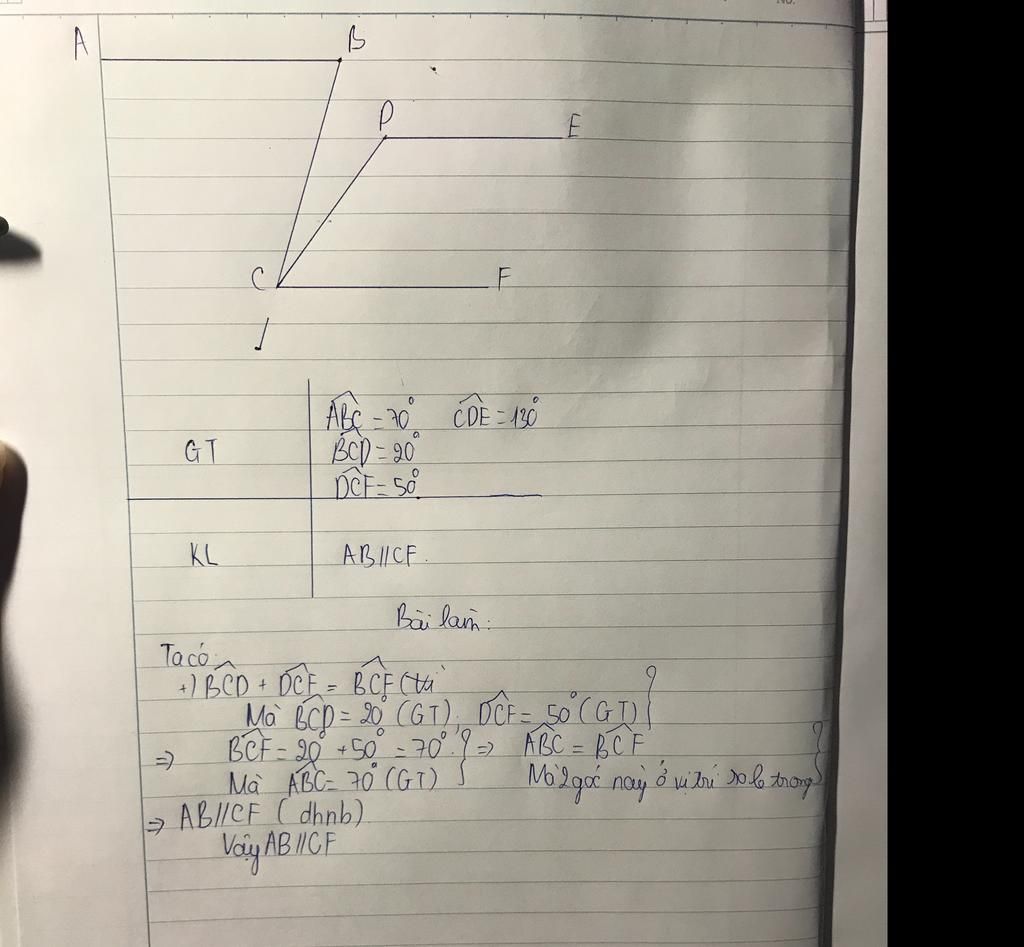 A B
D E
C F
GT
ABC = 70° CDE = 130°
BCD = 20°
DCF = 50°
KL
AB//CF.
Bài làm:
Ta có:
+) BCD + DCF = BCF (
Mà BCD = 20° (GT), DCF = 50° (GT)
=> BCF = 20° + 50° = 70° => ABC = BCF
Mà ABC = 70° (GT) Mà 2 góc này ở vị trí so le trong
=> AB//CF (dhnb)
Vậy AB//CF